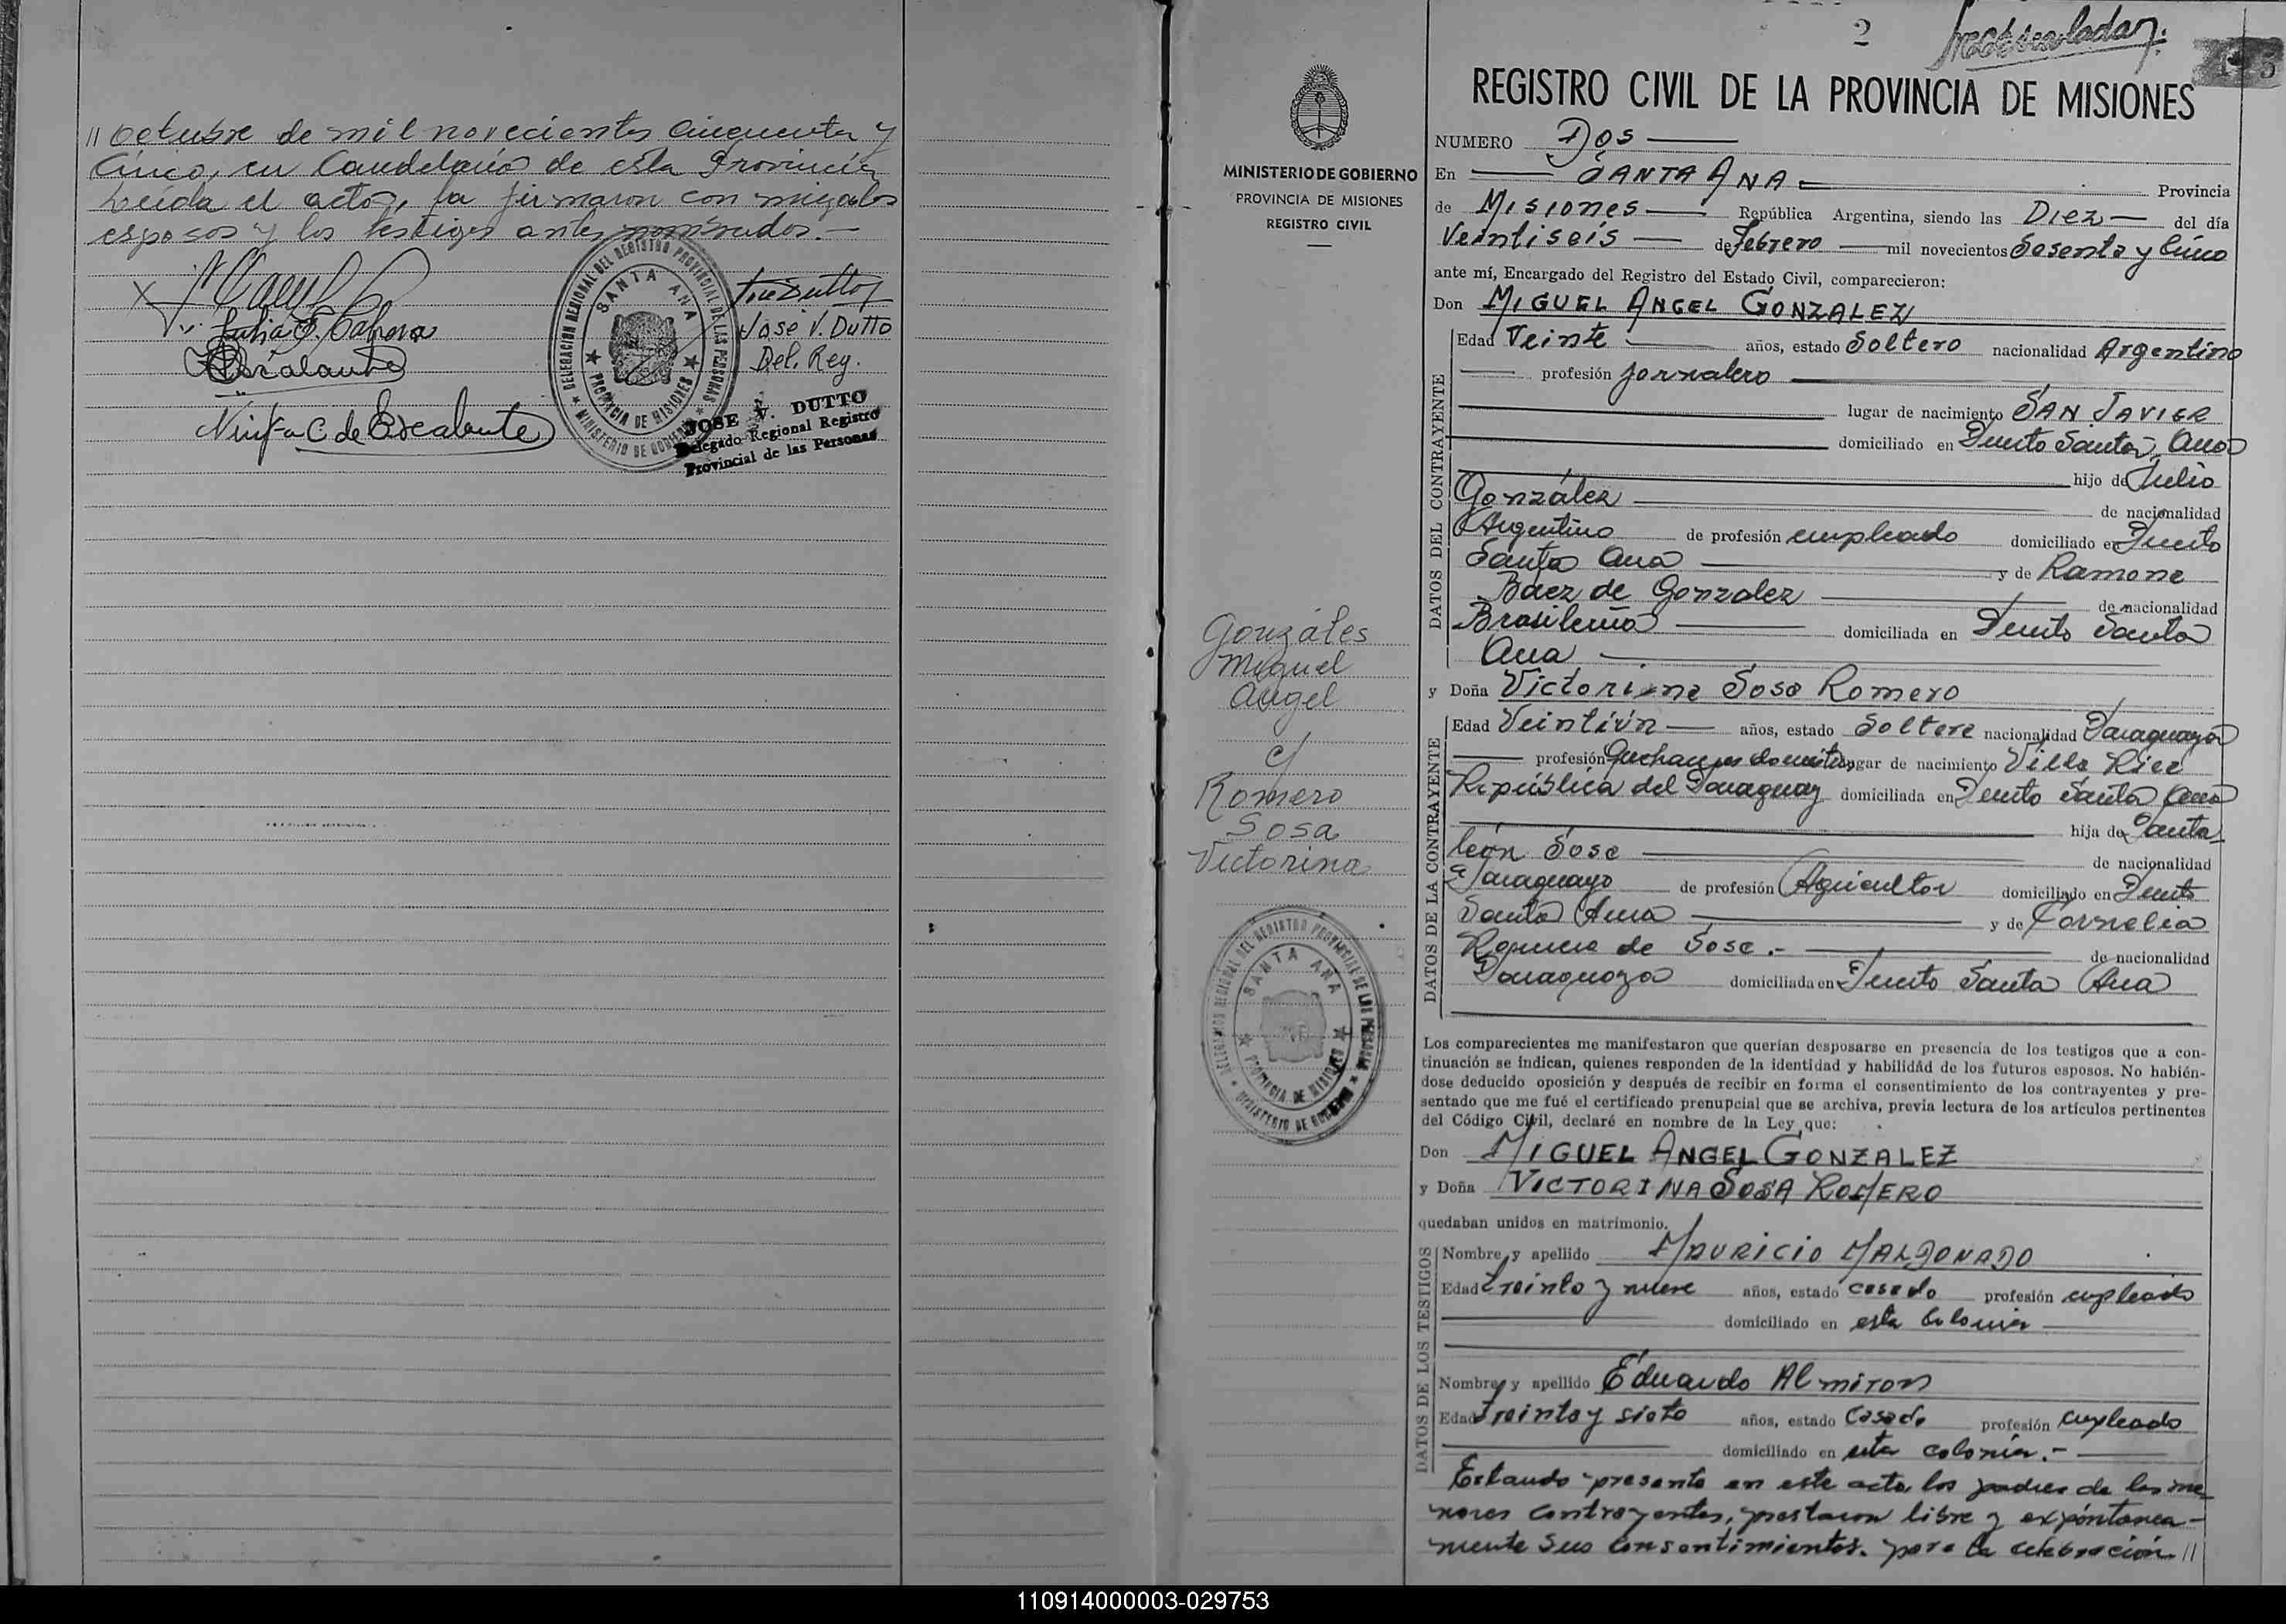 // Octubre de mil novecientos cincuenta y
cinco, en Candelaria de esta Provincia
Leída el acta, la firmaron con migo los
esposos y los testigos antes nombrados.—
Julia E. Cabrera
Escalante
Ninfa C de Escalante
DELEGACION REGIONAL DEL REGISTRO PROVINCIAL DE LAS PERSONAS
SANTA ANA
PROVINCIA DE MISIONES
MINISTERIO DE GOBIERNO
José V. Dutto
Del. Reg.
JOSE V. DUTTO
Delegado Regional Registro
Provincial de las Personas
2
REGISTRO CIVIL DE LA PROVINCIA DE MISIONES
MINISTERIO DE GOBIERNO
PROVINCIA DE MISIONES
REGISTRO CIVIL
Gonzáles
Miguel
Angel
c/
Romero
Sosa
Victorina
DELEGACION REGIONAL DEL REGISTRO PROVINCIAL DE LAS PERSONAS
SANTA ANA
PROVINCIA DE MISIONES
MINISTERIO DE GOBIERNO
NUMERO Dos
En SANTA ANA Provincia
de Misiones República Argentina, siendo las Diez del día
Veintiseis de Febrero mil novecientos Sesenta y Cinco
ante mí, Encargado del Registro del Estado Civil, comparecieron:
Don MIGUEL ANGEL GONZALEZ
DATOS DEL CONTRAYENTE
Edad Veinte años, estado Soltero nacionalidad Argentino
profesión jornalero
lugar de nacimiento SAN JAVIER
domiciliado en Santa Ana
hijo de Julio
González de nacionalidad
Argentino de profesión empleado domiciliado en
Santa Ana y de Ramona
Baez de Gonzalez de nacionalidad
Brasileña domiciliada en Santa
Ana
y Doña Victorina Sosa Romero
DATOS DE LA CONTRAYENTE
Edad Veintiún años, estado Soltera nacionalidad Paraguaya
profesión Quehaceres domésticos lugar de nacimiento Villa Rica
República del Paraguay domiciliada en Santa Ana
hija de Panta-
león Sosa de nacionalidad
Paraguayo de profesión Agricultor domiciliado en
Santa Ana y de Cornelia
Romero de Sosa.- de nacionalidad
Paraguaya domiciliada en Santa Ana
Los comparecientes me manifestaron que querían desposarse en presencia de los testigos que a con-
tinuación se indican, quienes responden de la identidad y habilidad de los futuros esposos. No habién-
dose deducido oposición y después de recibir en forma el consentimiento de los contrayentes y pre-
sentado que me fué el certificado prenupcial que se archiva, previa lectura de los artículos pertinentes
del Código Civil, declaré en nombre de la Ley que:
Don MIGUEL ANGEL GONZALEZ
y Doña VICTORINA SOSA ROMERO
quedaban unidos en matrimonio.
DATOS DE LOS TESTIGOS
Nombre y apellido MAURICIO MALDONADO
Edad treinta y nueve años, estado casado profesión empleado
domiciliado en esta Colonia
Nombre y apellido Eduardo Almiron
Edad treinta y siete años, estado Casado profesión empleado
domiciliado en esta colonia.-
Estando presente en este acto los padres de los me-
nores contrayentes, prestaron libre y expóntanea-
mente sus consentimientos. para la celebración //
110914000003-029753